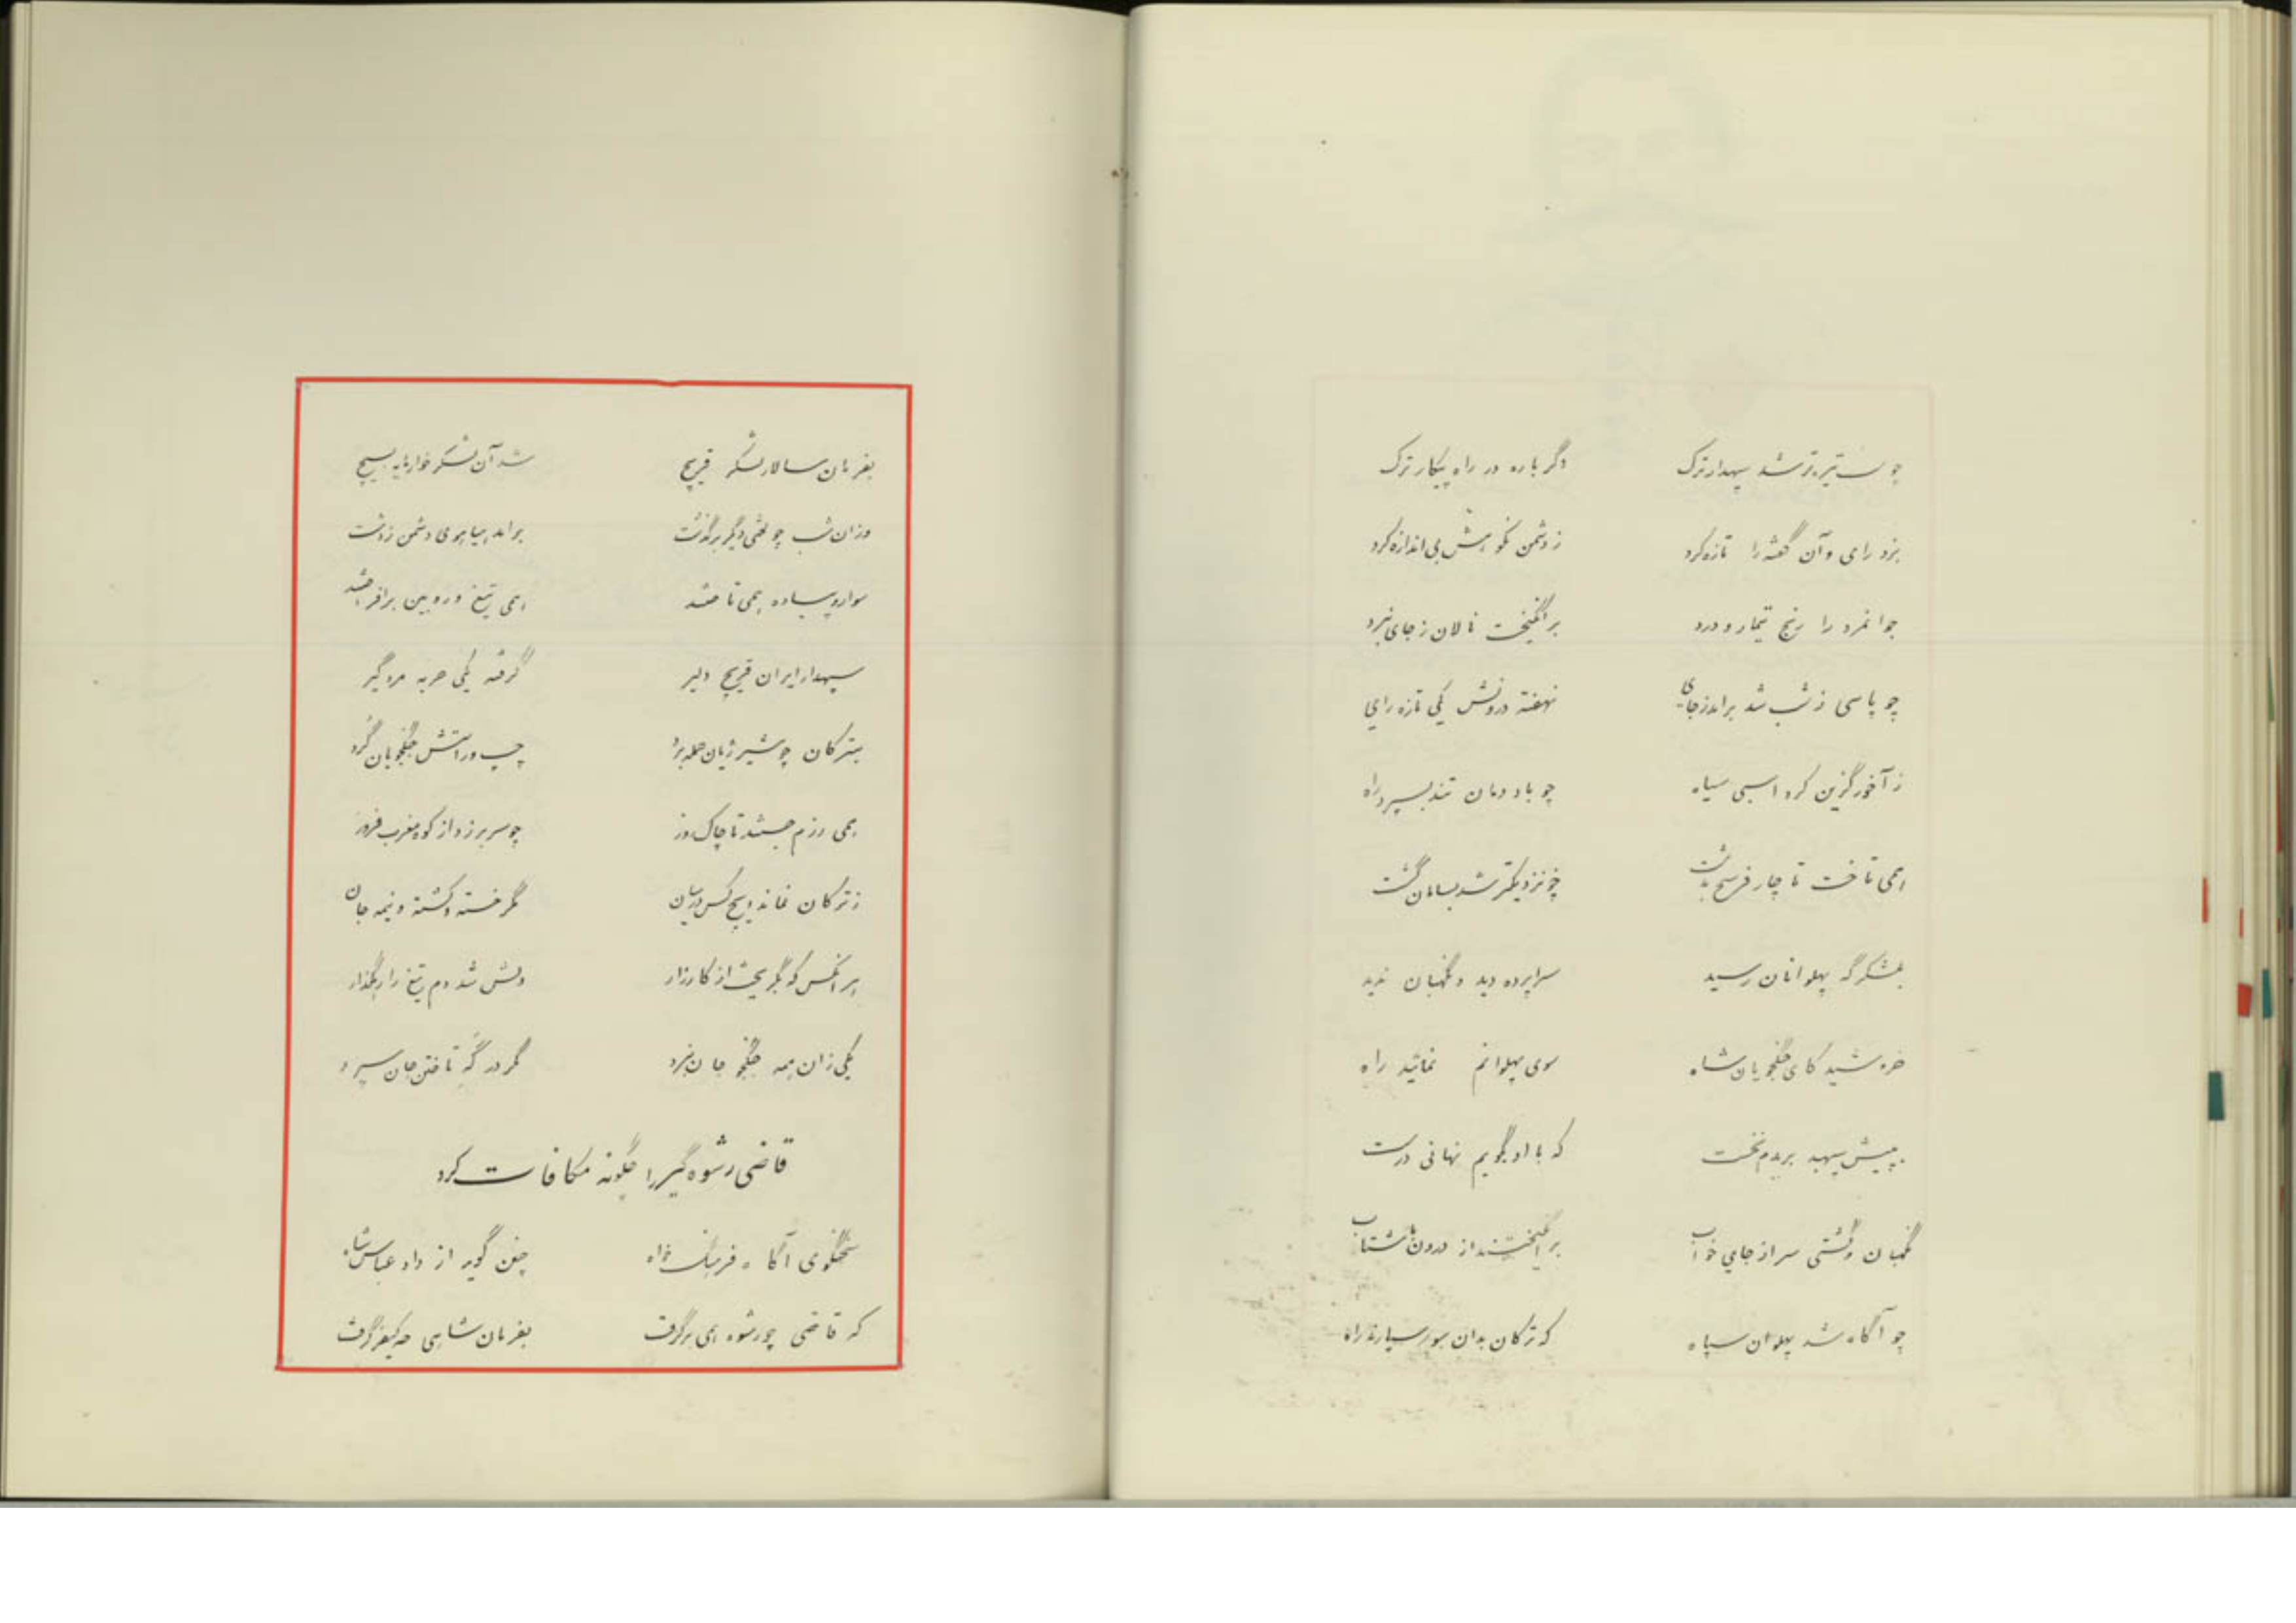 چو شب تیره‌تر شد سپهدار ترک دگر باره در راه پیکار ترک
بزد رای و آن گفته را تازه کرد ز دشمن نکوهش بی‌اندازه کرد
جوانمرد را رنج تیمار و درد برانگیخت نالان ز جای نبرد
چو پاسی ز شب شد براند ز جای نهفته درونش یکی تازه رای
ز آخور گزین کرد اسبی سیاه چو باد دمان تند بسپرد راه
همی تاخت تا چار فرسخ بدشت چو نزدیکتر شد بسامان گشت
بلشکرگه پهلوانان رسید سراپرده دید و نگهبان ندید
خروشید کای جنگجویان شاه سوی پهلوانم نمائید راه
به پیش سپهبد بریدم نخست که با او بگویم نهانی درست
نگهبان و گشتی سر از جای خواب برانگیختند از درون با شتاب
چو آگاه شد پهلوان سپاه که ترکان بدان سو سپارند راه
بفرمان سالار لشکر قرچ شد آن لشکر خوارمایه بسیچ
وزان شب چو لختی دگر برگذشت براند بهیاهوی دشمن ز دشت
سوار و پیاده همی تاختند همی تیغ و روبین برافراختند
سپهدار ایران قرچ دلیر گرفته یکی حربه مردگیر
بترکان چو شیر ژیان حمله برد چپ و راستش جنگجویان گرد
همی رزم جستند تا چاک روز چو سر برزد از کوه مغرب فروز
ز ترکان نماند ایچ کس در میان مگر خسته و کشته و نیمه جان
هر آنکس که بگریخت از کارزار دلش شد دم تیغ را رهگذار
یکی زان همه جنگجو جان نبرد مگر در گه تاختن جان سپرد
قاضی رشوه گیر را چگونه مکافات کرد
سخنگوی آگاه فرهنگ خواه چنین گوید از داد عباس شاه
که قاضی چو رشوه همی برگرفت بفرمان شاهی چه کیفر گرفت